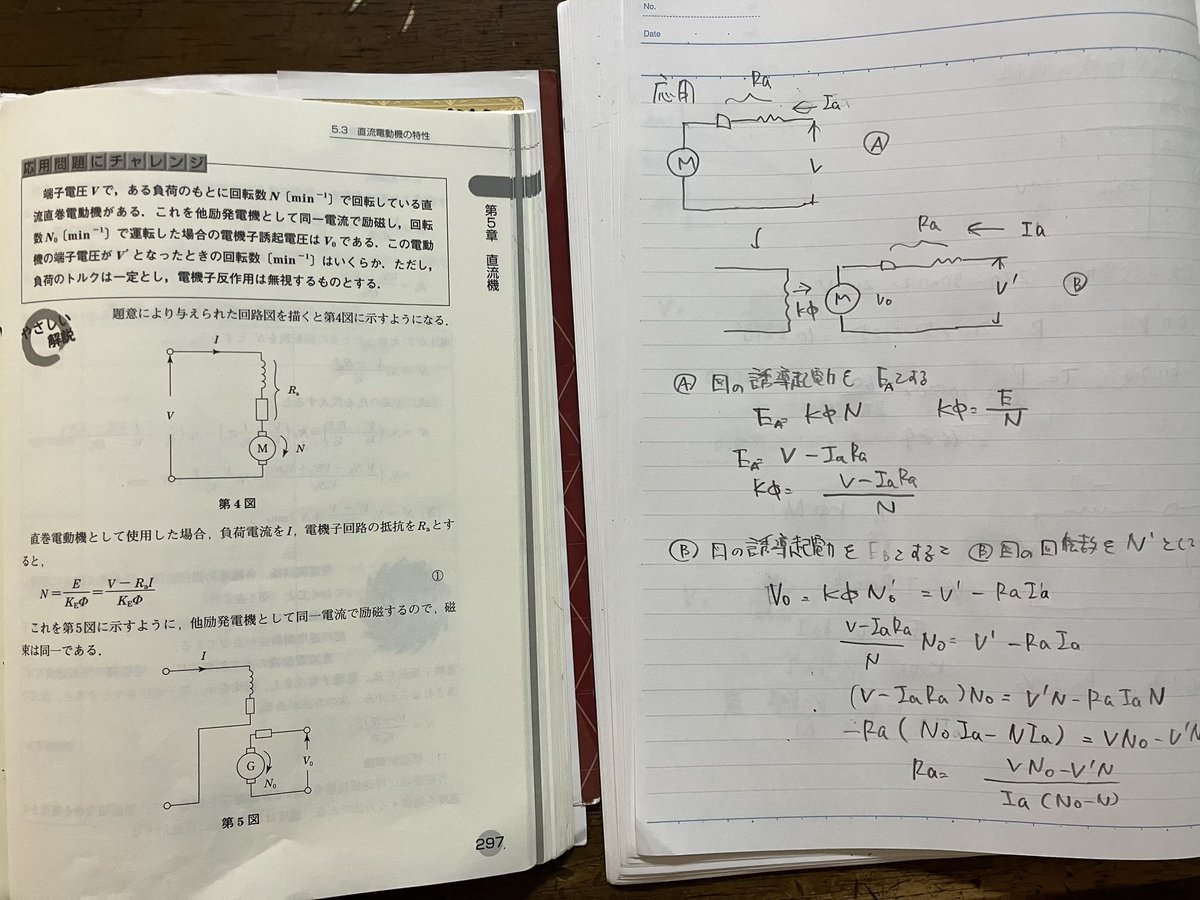 5.3 直流電動機の特性
応用問題にチャレンジ
端子電圧 V で，ある負荷のもとに回転数 N〔min⁻¹〕で回転している直
流直巻電動機がある．これを他励発電機として同一電流で励磁し，回転
数 N₀〔min⁻¹〕で運転した場合の電機子誘起電圧は V₀ である．この電動
機の端子電圧が V′ となったときの回転数〔min⁻¹〕はいくらか．ただし，
負荷のトルクは一定とし，電機子反作用は無視するものとする．
第5章 直流機
やさしい
解説
題意により与えられた回路図を描くと第4図に示すようになる．
I
V
Rₐ
M
N
第4図
直巻電動機として使用した場合，負荷電流を I，電機子回路の抵抗を Rₐ とす
ると，
N = E/K_EΦ = (V − RₐI)/K_EΦ ①
これを第5図に示すように，他励発電機として同一電流で励磁するので，磁
束は同一である．
I
G
N₀
V₀
第5図
297
No.
Date
応用
Ra
Ia
M
V
Ⓐ
Ra
Ia
KΦ
M
V₀
V'
Ⓑ
Ⓐ 図の誘導起電力を E_Aとする
E_A = KΦN KΦ = E/N
E_A = V − IaRa
KΦ = (V − IaRa)/N
Ⓑ 図の誘導起電力を E_Bとすると Ⓑ図の回転数を N'として
V₀ = KΦN₀' = V' − RaIa
(V − IaRa)/N N₀ = V' − RaIa
(V − IaRa)N₀ = V'N − RaIaN
−Ra(N₀Ia − NIa) = VN₀ − V'N
Ra = (VN₀ − V'N)/(Ia(N₀ − N))